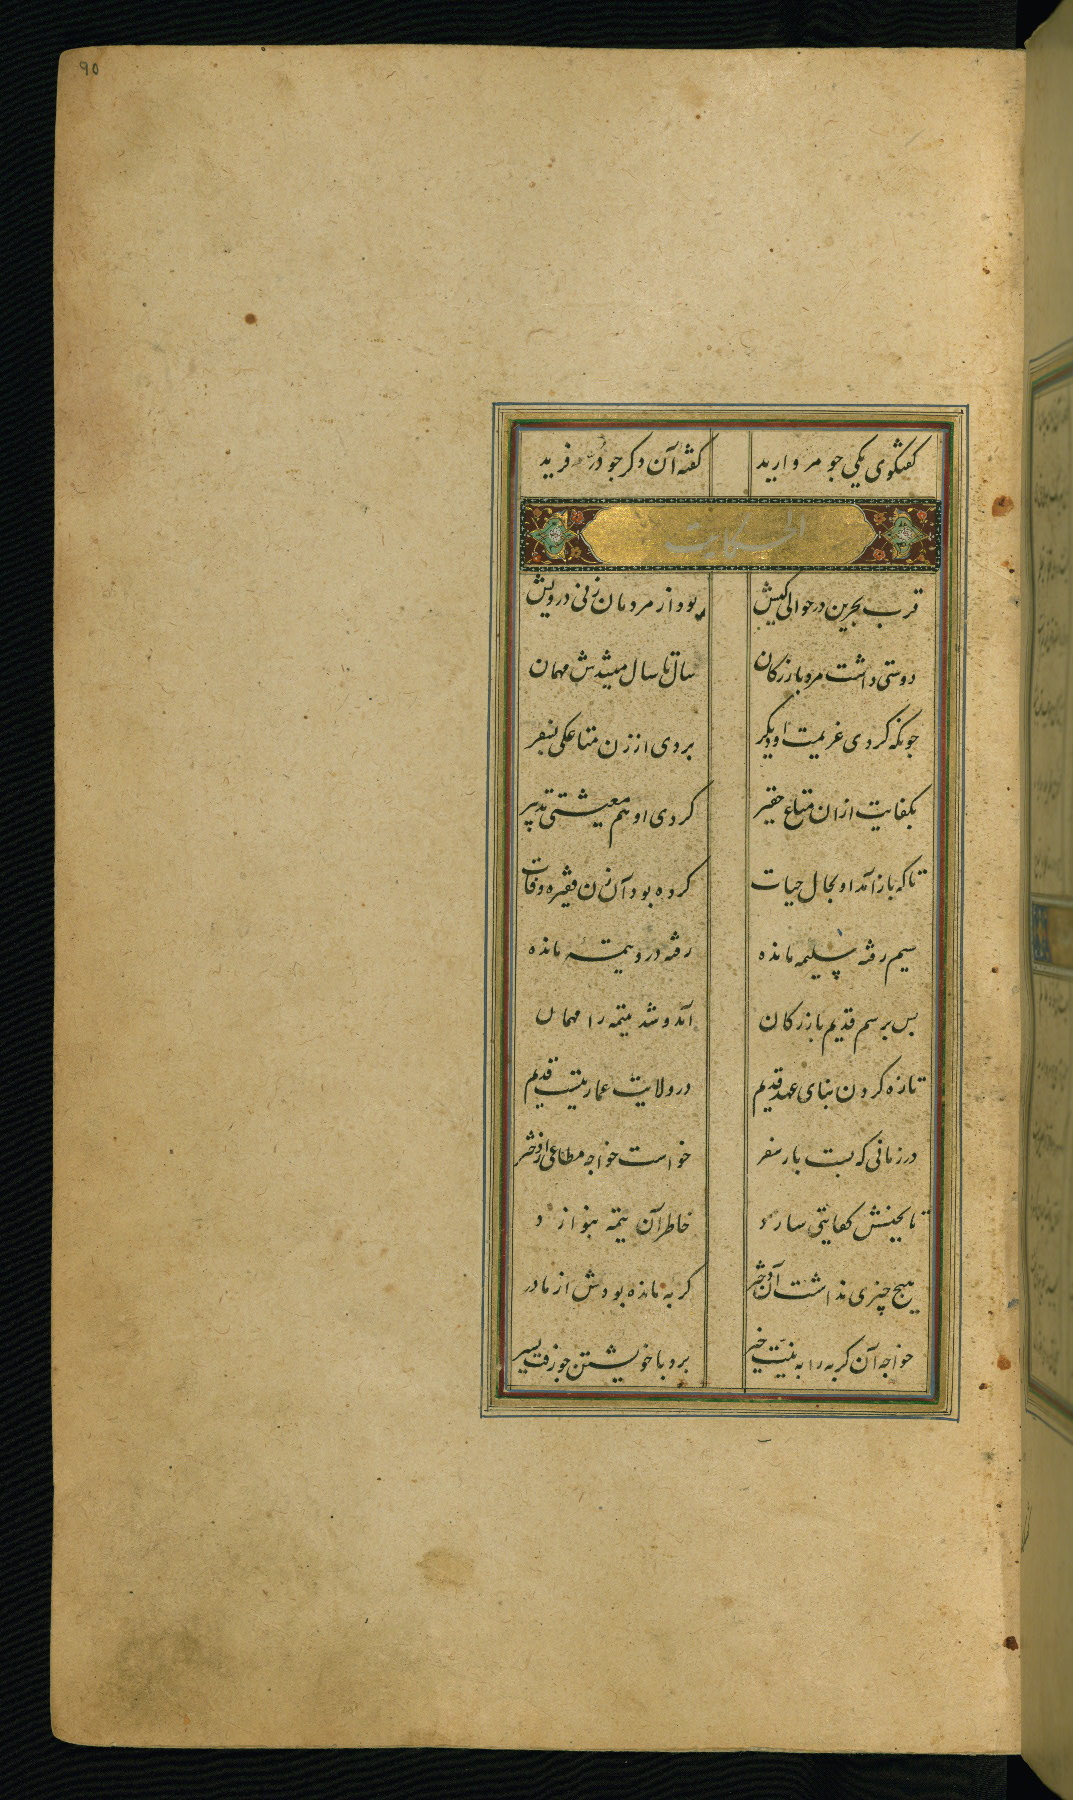 ۹۵
گفتگوی یکی جو مروارید گفته آن دکر جو در فرید
الحکایت
قرب بحرین در حوالی کیش بود از مردمان زنی درویش
دوستی داشت مرد بازرکان سال تا سال میشدش مهمان
جونکه کردی عزیمت او دیکر بردی از زن متاعکی بسفر
بکفایت ازان متاع حقیر کردی او هم معیشتی تدبیر
تا که باز آمد او بحال حیات کرده بود آن زن فقیره وفات
سیم رفته سلیمه مانده رفته در و یتیمه مانده
بس برسم قدیم بازرکان آمد و شد یتیمه را مهمان
تازه کردن بنای عهد قدیم در ولایت عمارتیست قدیم
در زمانی که بست بار سفر خواست خواجه مطاعی از دختر
تا بجینش کفایتی سازد خاطر آن یتیمه بنوازد
هیج چیزی نداشت آن دختر کربه مانده بودش از مادر
خواجه آن کربه را به نیت خیر برد با خویشتن جو رفت بسیر